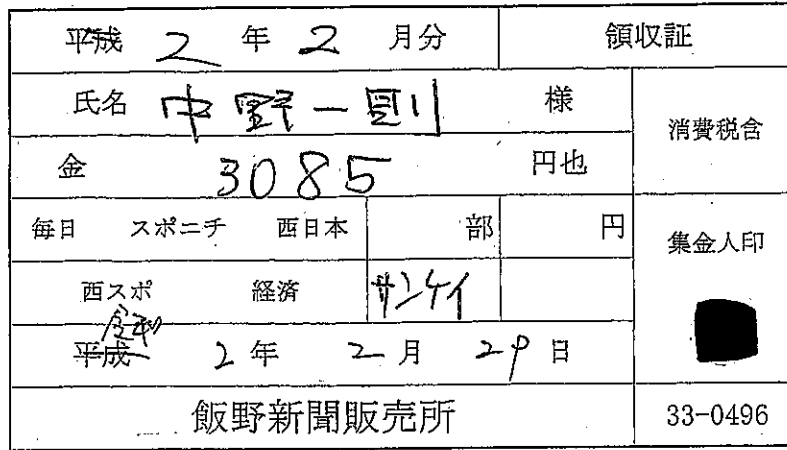 平成 2 年 2 月分 領収証
氏名 中野一則 様
消費税含
金 3085 円也
毎日 スポニチ 西日本 部 円
集金人印
西スポ 経済 サンケイ
令和
平成 2 年 2 月 29 日
飯野新聞販売所 33-0496